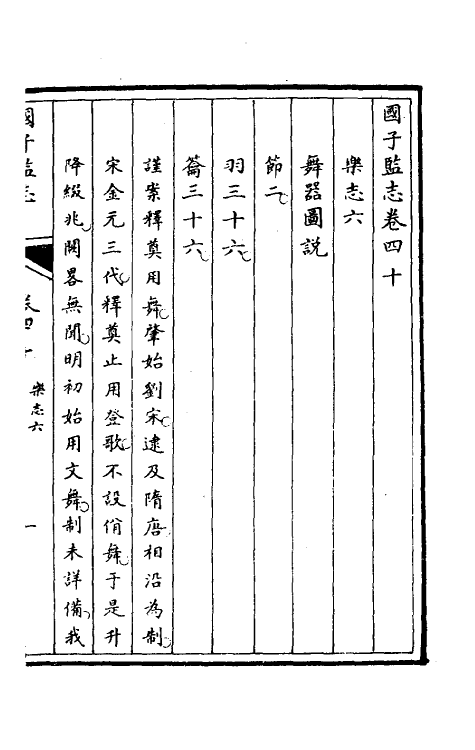 國子監志卷四十
樂志六
舞器圖說
節二
羽三十六
籥三十六
謹案釋奠用舞肇始劉宋逮及隋唐相沿為制
宋金元三代釋奠止用登歌不設佾舞于是升
降綴兆闕畧無聞明初始用文舞制未詳備我
國子監志
卷四十
樂志六
一